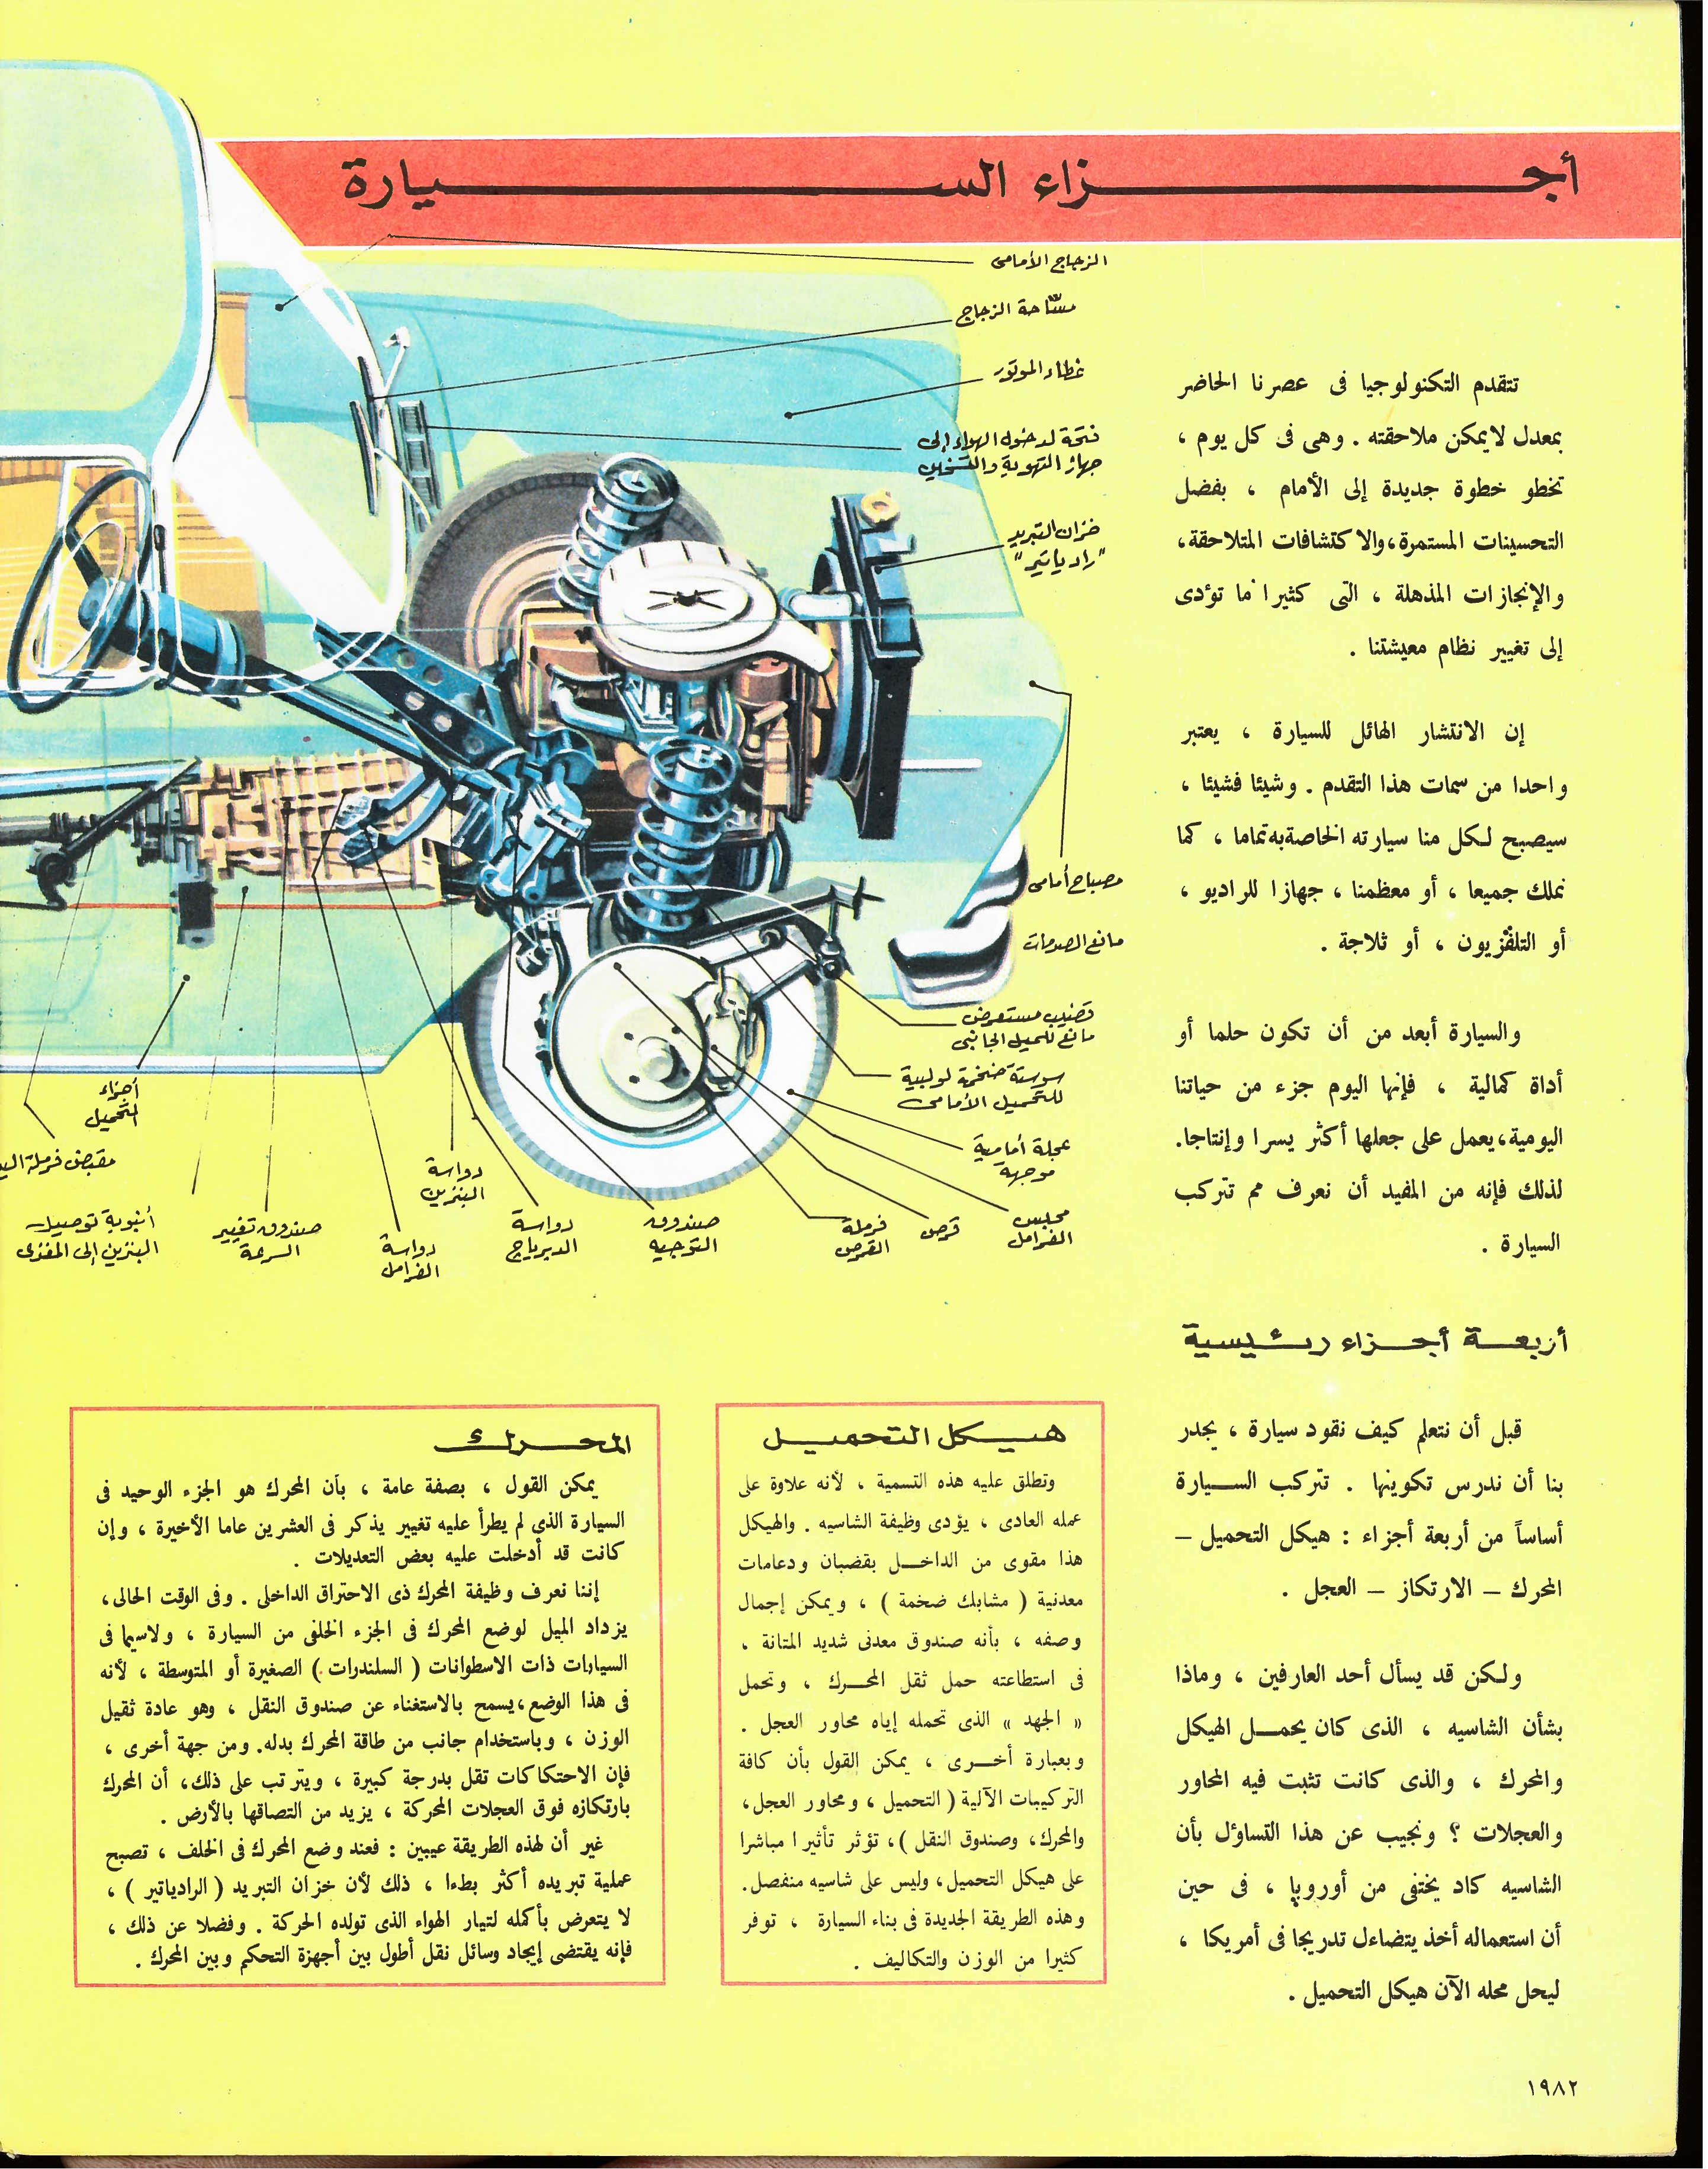 أجزاء السيارة
الزجاج الأمامى
مسّاحة الزجاج
غطاء الموتور
فتحة لدخول الهواء إلى
جهاز التهوية والتسخين
خزان التبريد
"رادياتير"
مصباح أمامى
مانع الصدمات
قضيب مستعرض
مانع للميل الجانبى
سوستة ضخمة لولبية
للتحميل الأمامى
عجلة أمامية
موجهة
محبس
الفرامل
قرص
فرملة
القرص
صندوق
التوجيه
دواسة
الديرياج
دواسة
البنزين
دواسة
الفرامل
صندوق تغيير
السرعة
أنبوبة توصيل
البنزين إلى المغذى
أجزاء
التحميل
مقبض فرملة اليد
تتقدم التكنولوجيا فى عصرنا الحاضر
بمعدل لايمكن ملاحقته . وهى فى كل يوم ،
تخطو خطوة جديدة إلى الأمام ، بفضل
التحسينات المستمرة،والاكتشافات المتلاحقة،
والإنجازات المذهلة ، التى كثيرا ما تؤدى
إلى تغيير نظام معيشتنا .
إن الانتشار الهائل للسيارة ، يعتبر
واحدا من سمات هذا التقدم . وشيئا فشيئا ،
سيصبح لكل منا سيارته الخاصةبه تماما ، كما
نملك جميعا ، أو معظمنا ، جهازا للراديو ،
أو التلفزيون ، أو ثلاجة .
والسيارة أبعد من أن تكون حلما أو
أداة كمالية ، فإنها اليوم جزء من حياتنا
اليومية،يعمل على جعلها أكثر يسرا وإنتاجا.
لذلك فإنه من المفيد أن نعرف مم تتركب
السيارة .
أربعة أجزاء رئيسية
قبل أن نتعلم كيف نقود سيارة ، يجدر
بنا أن ندرس تكوينها . تتركب السيارة
أساساً من أربعة أجزاء : هيكل التحميل –
المحرك – الارتكاز – العجل .
ولكن قد يسأل أحد العارفين ، وماذا
بشأن الشاسيه ، الذى كان يحمل الهيكل
والمحرك ، والذى كانت تثبت فيه المحاور
والعجلات ؟ ونجيب عن هذا التساؤل بأن
الشاسيه كاد يختفى من أوروبا ، فى حين
أن استعماله أخذ يتضاءل تدريجا فى أمريكا ،
ليحل محله الآن هيكل التحميل .
هيكل التحميل
وتطلق عليه هذه التسمية ، لأنه علاوة على
عمله العادى ، يؤدى وظيفة الشاسيه . والهيكل
هذا مقوى من الداخل بقضبان ودعامات
معدنية ( مشابك ضخمة ) ، ويمكن إجمال
وصفه ، بأنه صندوق معدنى شديد المتانة ،
فى استطاعته حمل ثقل المحرك ، وتحمل
« الجهد » الذى تحمله إياه محاور العجل .
وبعبارة أخرى ، يمكن القول بأن كافة
التركيبات الآلية ( التحميل ، ومحاور العجل ،
والمحرك، وصندوق النقل )، تؤثر تأثيرا مباشرا
على هيكل التحميل، وليس على شاسيه منفصل.
وهذه الطريقة الجديدة فى بناء السيارة ، توفر
كثيرا من الوزن والتكاليف .
المحرك
يمكن القول ، بصفة عامة ، بأن المحرك هو الجزء الوحيد فى
السيارة الذى لم يطرأ عليه تغيير يذكر فى العشرين عاما الأخيرة ، وإن
كانت قد أدخلت عليه بعض التعديلات .
إننا نعرف وظيفة المحرك ذى الاحتراق الداخلى . وفى الوقت الحالى،
يزداد الميل لوضع المحرك فى الجزء الخلفى من السيارة ، ولاسيما فى
السيارات ذات الاسطوانات ( السلندرات ) الصغيرة أو المتوسطة ، لأنه
فى هذا الوضع،يسمح بالاستغناء عن صندوق النقل ، وهو عادة ثقيل
الوزن ، وباستخدام جانب من طاقة المحرك بدله. ومن جهة أخرى ،
فإن الاحتكاكات تقل بدرجة كبيرة ، ويترتب على ذلك، أن المحرك
بارتكازه فوق العجلات المحركة ، يزيد من التصاقها بالأرض .
غير أن لهذه الطريقة عيبين : فعند وضع المحرك فى الخلف ، تصبح
عملية تبريده أكثر بطءا ، ذلك لأن خزان التبريد ( الرادياتير ) ،
لا يتعرض بأكمله لتيار الهواء الذى تولده الحركة . وفضلا عن ذلك ،
فإنه يقتضى إيجاد وسائل نقل أطول بين أجهزة التحكم وبين المحرك .
١٩٨٢